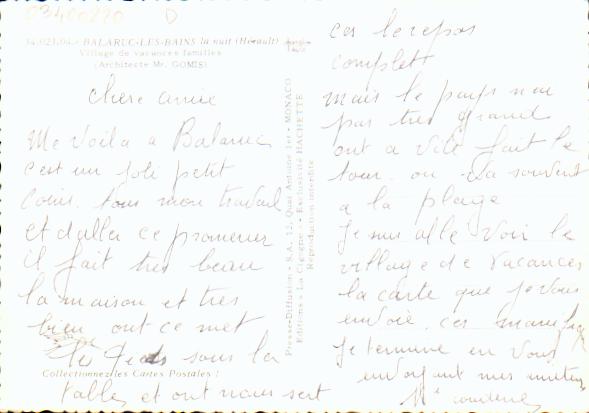 03400220
34.023.04 - BALARUC-LES-BAINS la nuit (Hérault)
Village de vacances familles
(Architecte Mr. GOMIS)
chere amie
Me voila a Balaruc
c'est un joli petit
coin. tous mon travail
et d'aller ce promener
il fait tres beau
la maison et tres
bien ont ce met
les pieds sous la
table et ont nous sert
Collectionnez les Cartes Postales !
Presse-Diffusion - S.A. 12, Quai Antoine 1er - MONACO
Editions « La Cigogne » - Exclusivité HACHETTE
Reproduction interdite
ces le repos
complet
mais le pays non
pas tres grand
ont a vite fait le
tour. on va souvent
a la plage
Je suis alle voir le
village de vacances
la carte que je vous
envoie. ces
Je termine en vous
envoyant mes